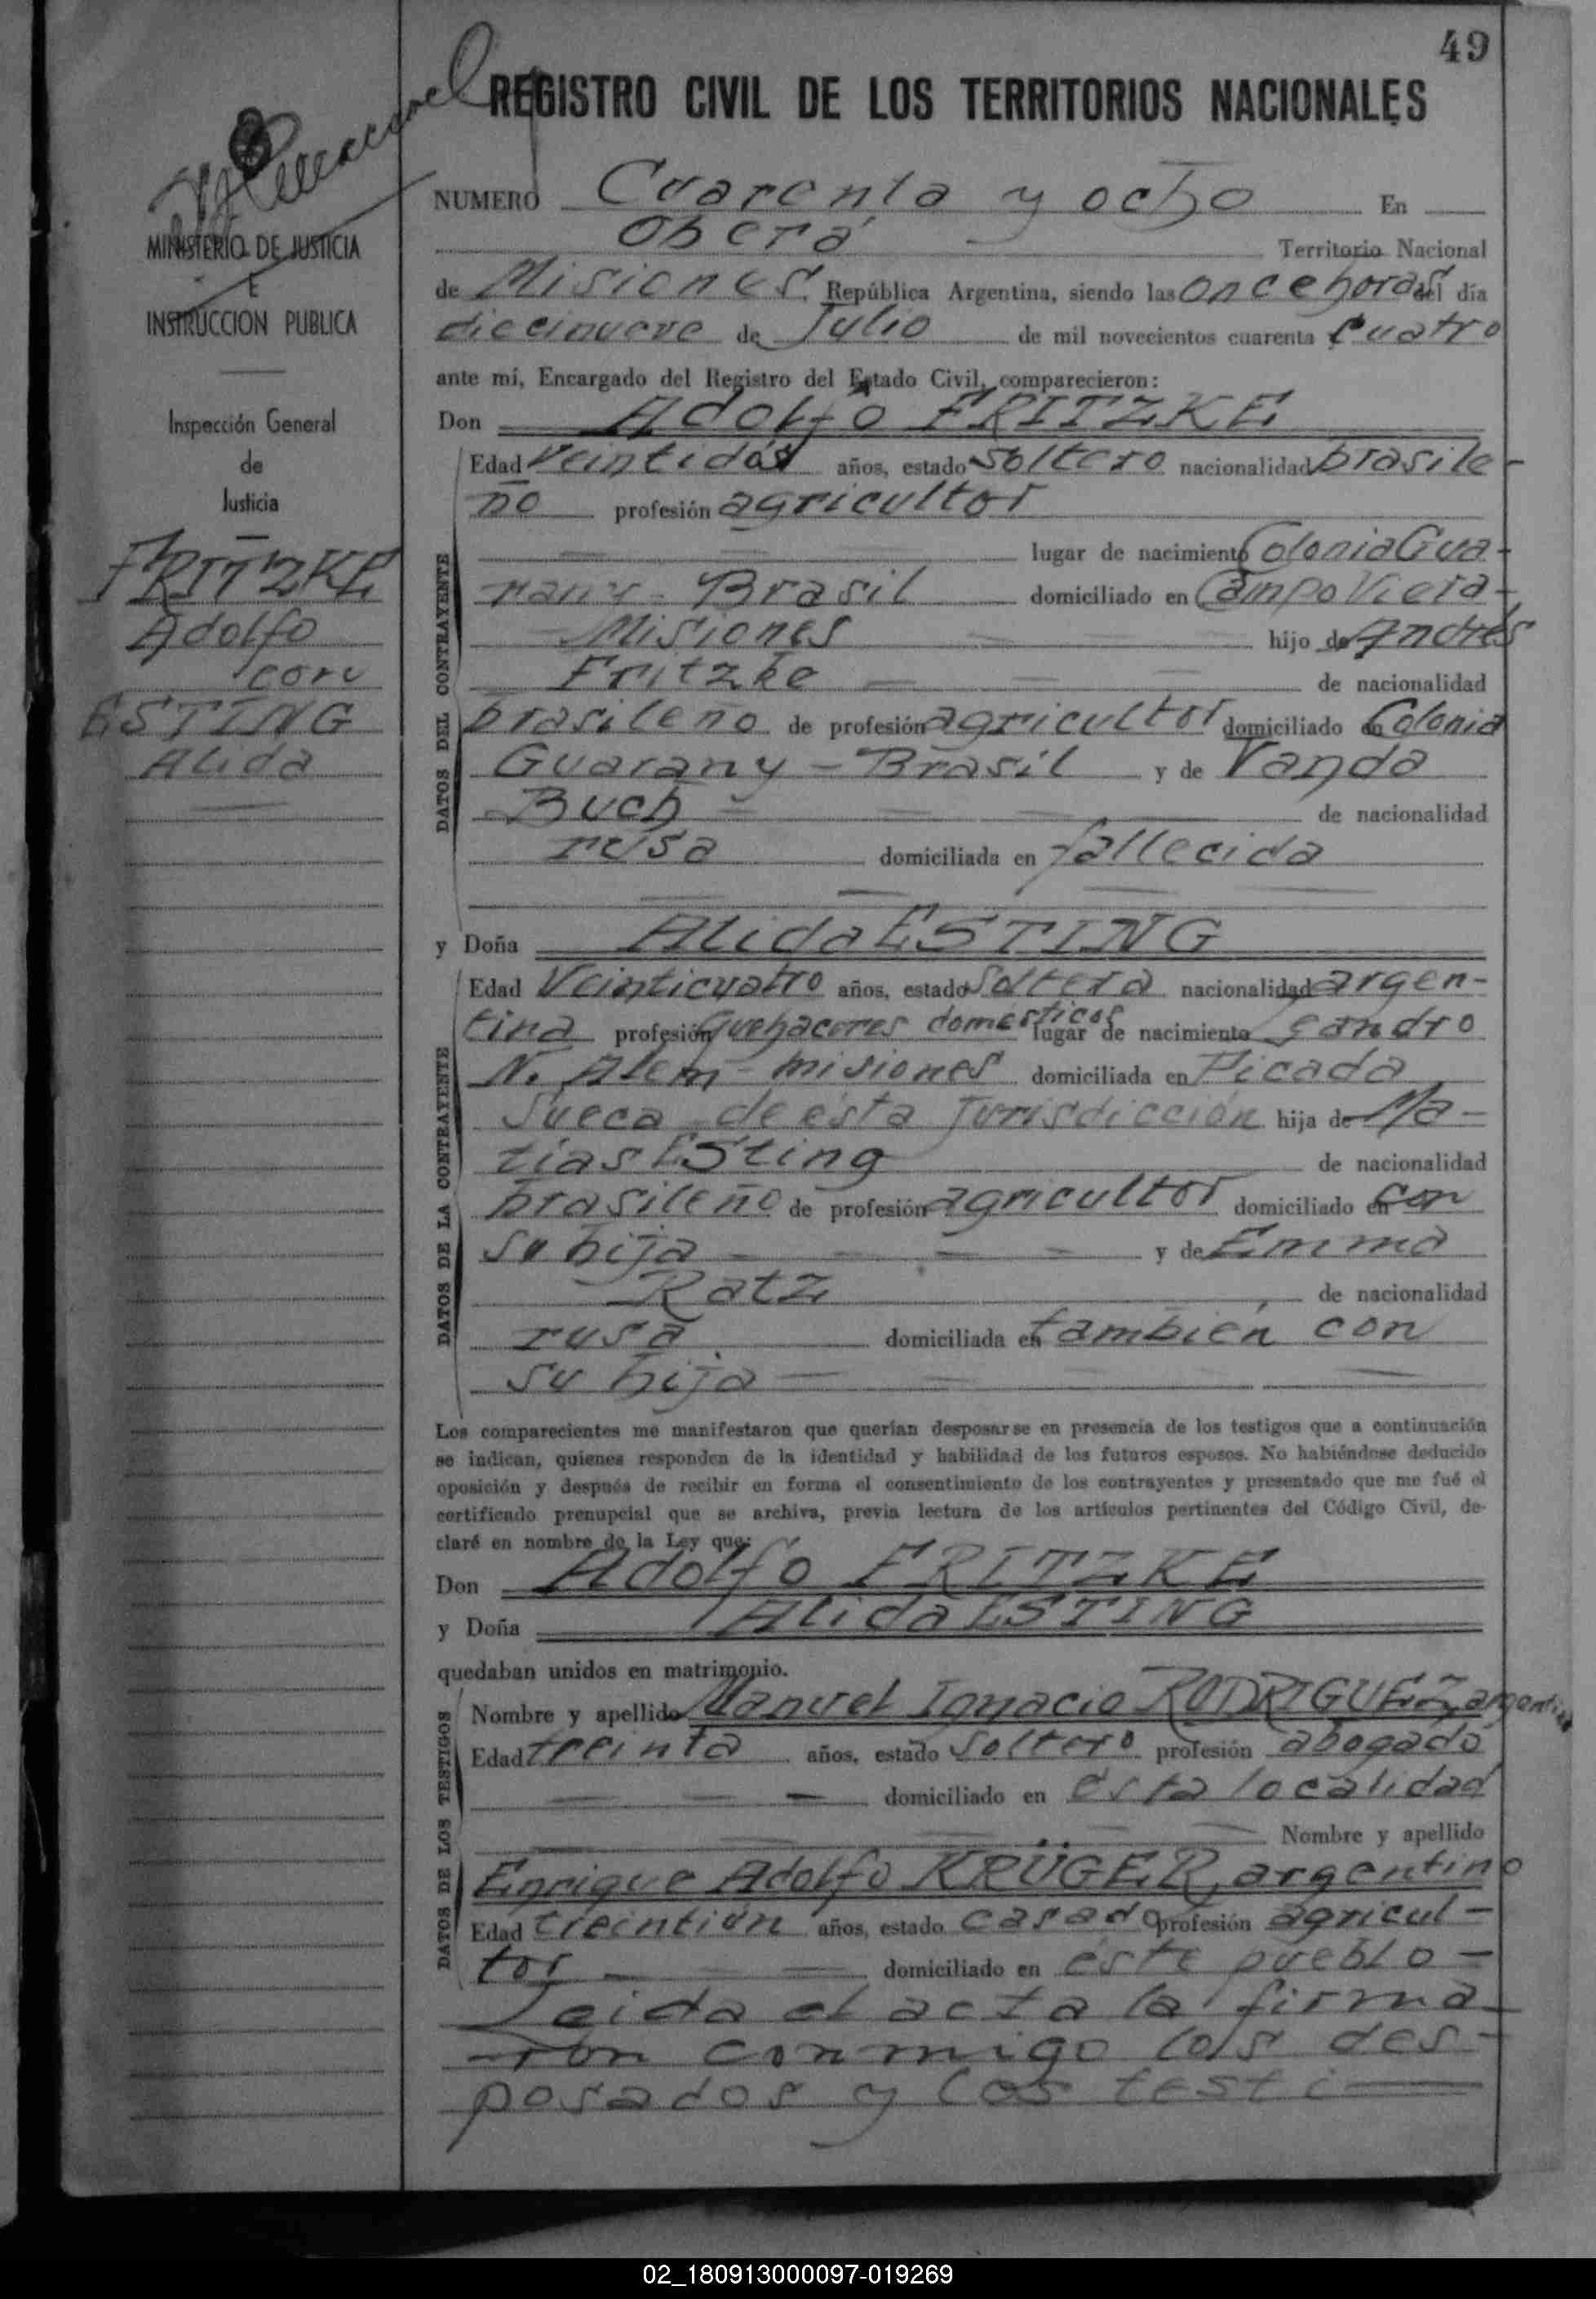 49
REGISTRO CIVIL DE LOS TERRITORIOS NACIONALES
MINISTERIO DE JUSTICIA
E
INSTRUCCION PUBLICA
Inspección General
de
Justicia
FRITZKE
Adolfo
con
ESTING
Alida
NUMERO Cuarenta y ocho En
Oberá Territorio Nacional
de Misiones República Argentina, siendo las once horas del día
diecinueve de Julio de mil novecientos cuarenta cuatro
ante mí, Encargado del Registro del Estado Civil, comparecieron:
Don Adolfo FRITZKE
DATOS DEL CONTRAYENTE
Edad Veintidós años, estado soltero nacionalidad brasile-
ño profesión agricultor
lugar de nacimiento Colonia Gua-
rany - Brasil domiciliado en Campo Viera-
Misiones hijo de Andrés
Fritzke de nacionalidad
brasileño de profesión agricultor domiciliado en Colonia
Guarany - Brasil y de Vanda
Buch de nacionalidad
rusa domiciliada en fallecida
y Doña Alida ESTING
DATOS DE LA CONTRAYENTE
Edad Veinticuatro años, estado Soltera nacionalidad argen-
tina profesión quehaceres domésticos lugar de nacimiento Leandro
N. Alem - misiones domiciliada en Picada
Sueca de ésta Jurisdicción hija de Ma-
tías Esting de nacionalidad
brasileño de profesión agricultor domiciliado en con
su hija y de Emma
Ratz de nacionalidad
rusa domiciliada en también con
su hija
Los comparecientes me manifestaron que querían desposarse en presencia de los testigos que a continuación
se indican, quienes responden de la identidad y habilidad de los futuros esposos. No habiéndose deducido
oposición y después de recibir en forma el consentimiento de los contrayentes y presentado que me fué el
certificado prenupcial que se archiva, previa lectura de los artículos pertinentes del Código Civil, de-
claré en nombre de la Ley que:
Don Adolfo FRITZKE
y Doña Alida ESTING
quedaban unidos en matrimonio.
DATOS DE LOS TESTIGOS
Nombre y apellido Manuel Ignacio RODRIGUEZ, argentino
Edad treinta años, estado Soltero profesión abogado
domiciliado en ésta localidad
Nombre y apellido
Enrique Adolfo KRÜGER, argentino
Edad treintiún años, estado casado profesión agricul-
tor domiciliado en éste pueblo -
Leida el acta la firma
ron conmigo los des-
posados y los testi
02_180913000097-019269